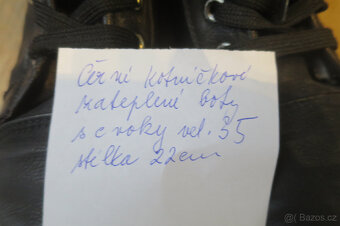 Černé kotníčkové
zateplené boty
s cvoky vel. 35
stélka 22cm
Bazoš.cz